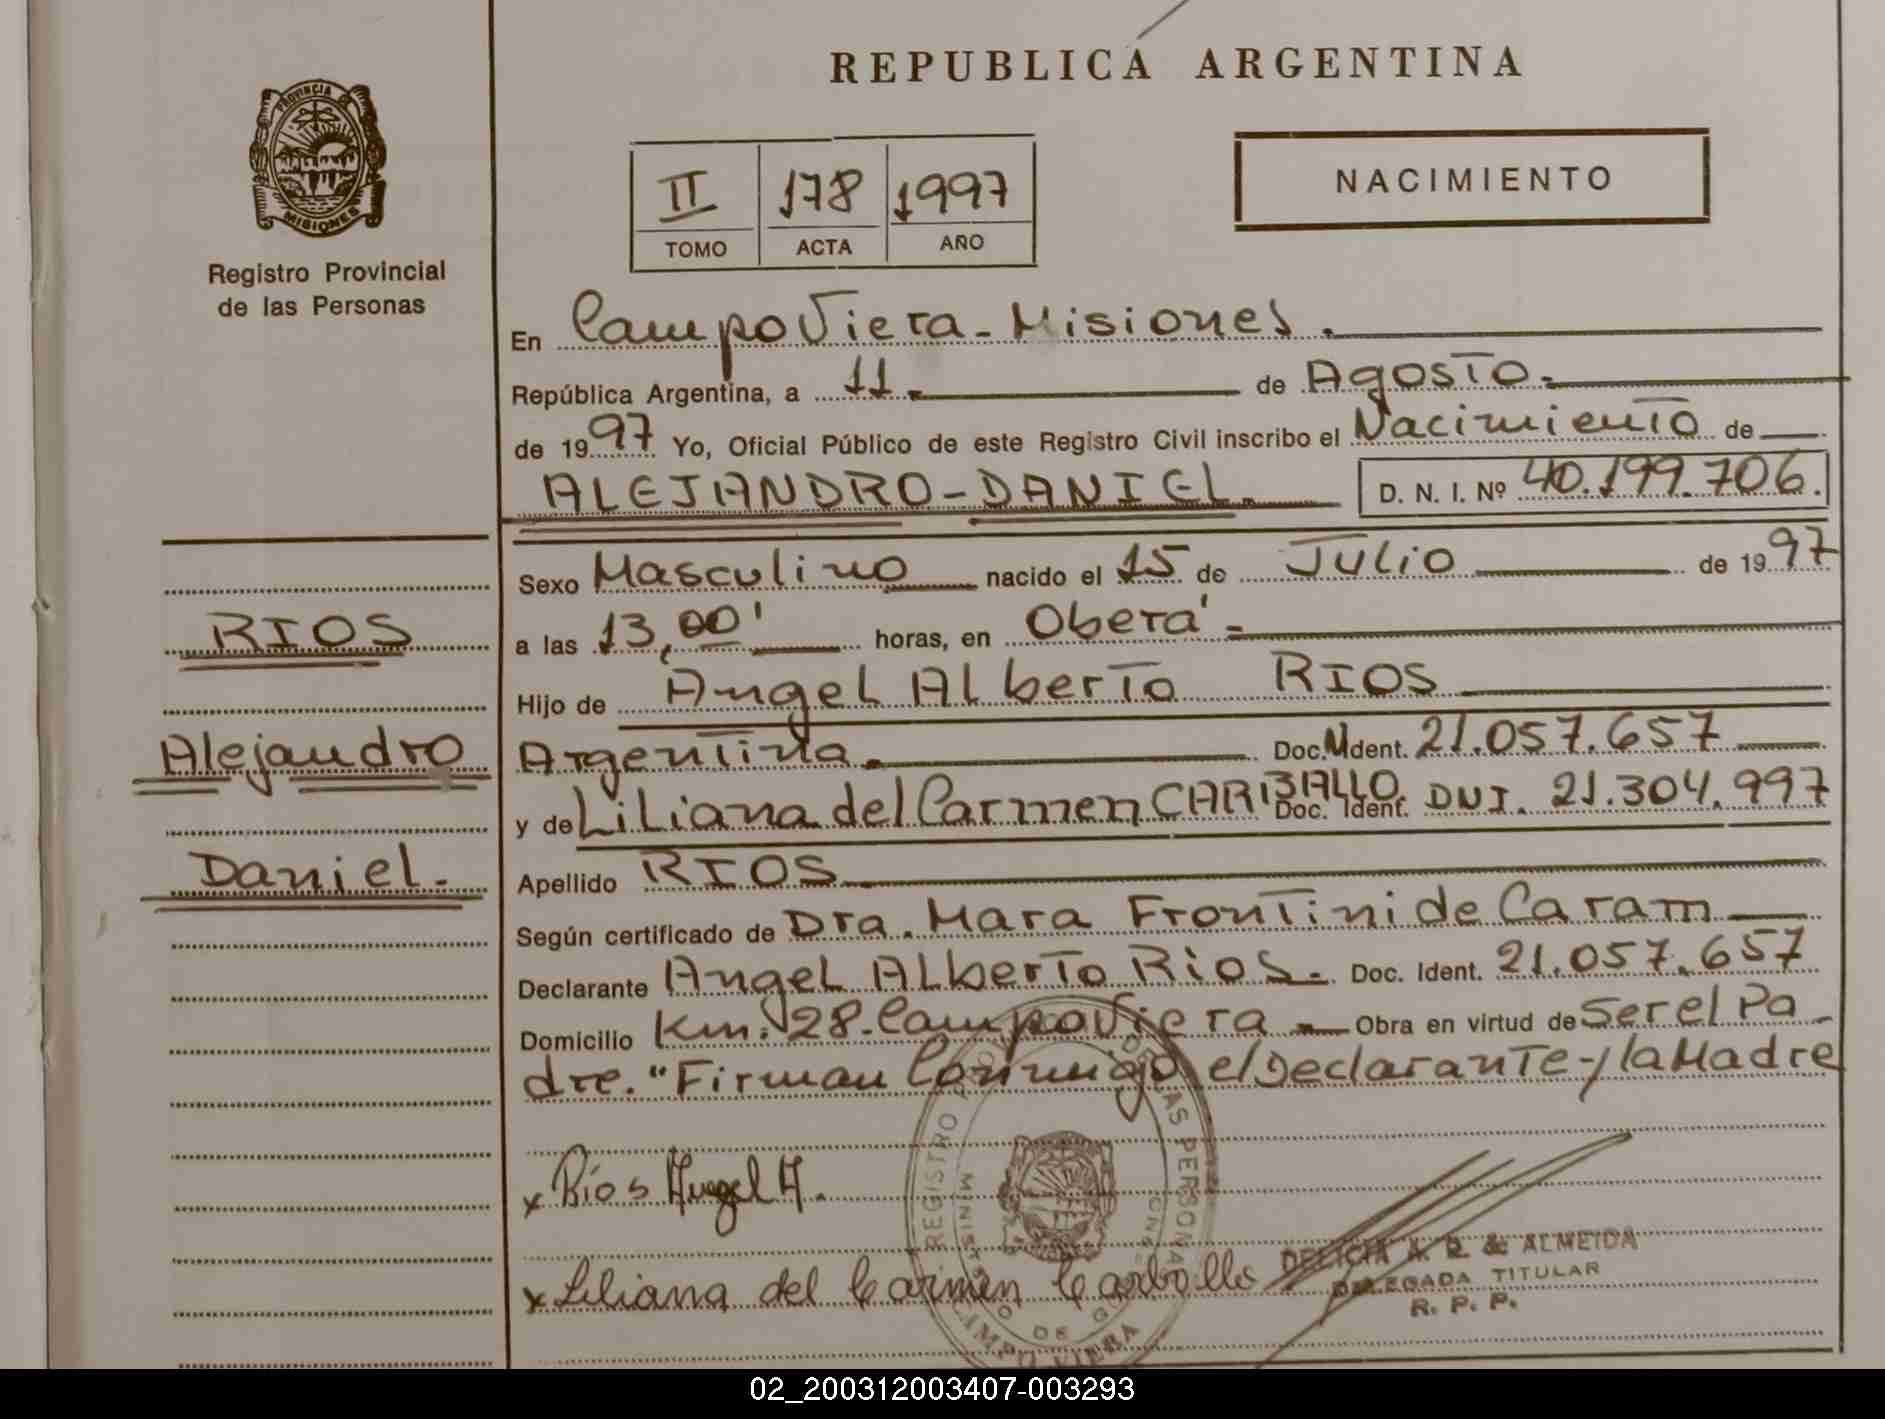 REPUBLICA ARGENTINA
PROVINCIA DE
MISIONES
Registro Provincial
de las Personas
II 178 1997
TOMO ACTA AÑO
NACIMIENTO
En Campo Viera - Misiones.
República Argentina, a 11.- de Agosto.-
de 1997 Yo, Oficial Público de este Registro Civil inscribo el Nacimiento de
ALEJANDRO-DANIEL.
D. N. I. Nº 40.199.706.
Sexo Masculino nacido el 15 de Julio de 1997
RIOS
a las 13,00' horas, en Oberá-
Hijo de Angel Alberto RIOS
Alejandro
Argentina. Doc. Ident. 21.057.657
y de Liliana del Carmen Doc. Ident. DNI. 21.304.997
Daniel.-
Apellido RIOS
Según certificado de Dra. Mara Frontini de Caram
Declarante Angel Alberto Rios.- Doc. Ident. 21.057.657
Domicilio Km. 28. Campo Viera - Obra en virtud de Ser el Pa-
dre." Firman Conmigo el Declarante - y la Madre
x Ríos Angel A.
x Liliana del Carmen Carballo
REGISTRO DE LAS PERSONAS
CAMPO VIERA
DELICIA A. D. de ALMEIDA
DELEGADA TITULAR
R. P. P.
02_200312003407-003293